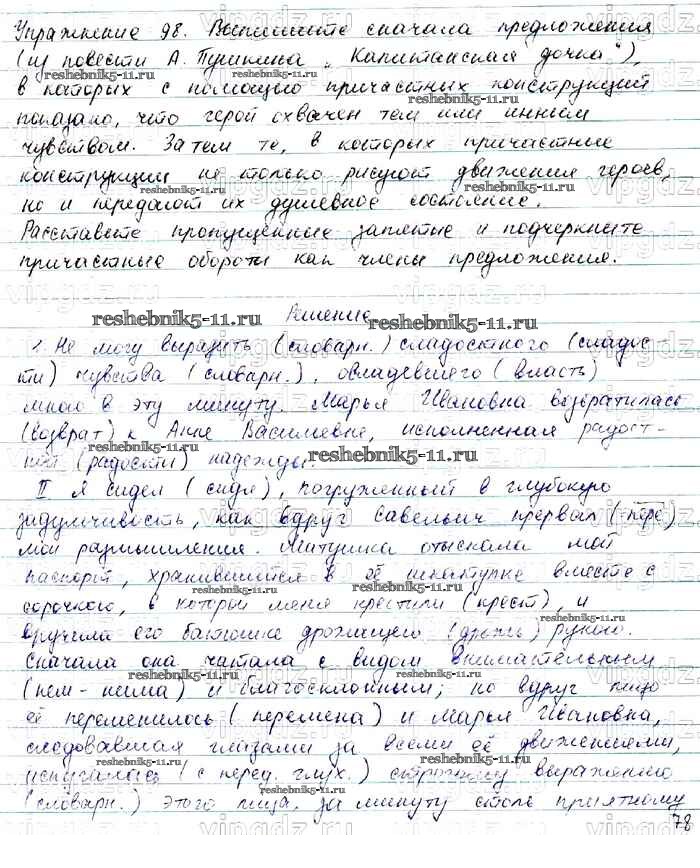 Упражнение 98. Выпишите сначала предложения
(из повести А. Пушкина „Капитанская дочка"),
в которых с помощью причастных конструкций
показано, что герой охвачен тем или иным
чувством. Затем те, в которых причастные
конструкции не только рисуют движения героев,
но и передают их душевное состояние.
Расставьте пропущенные запятые и подчеркните
причастные обороты как члены предложения.
Решение
I. Не могу выразить (словарн.) сладостного (сладос-
ти) чувства (словарн.), овладевшего (власть)
мною в эту минуту. Марья Ивановна возвратилась
(возврат) к Анне Васильевне, исполненная радост-
ной (радости) надежды.
II Я сидел (сидя), погруженный в глубокую
задумчивость, как вдруг Савельич прервал (пере)
мои размышления. Матушка отыскала мой
паспорт, хранившийся в её шкатулке вместе с
сорочкою, в которой меня крестили (крест), и
вручила его батюшке дрожащею (дрожь) рукою.
Сначала она читала с видом внимательным
и благосклонным; но вдруг лицо
её переменилось (перемена) и Марья Ивановна,
следовавшая глазами за всеми её движениями,
испугалась (с перед. глух.) строгому выражению
(словарн.) этого лица, за минуту столь приятному
78
reshebnik5-11.ru
vipgdz.ru